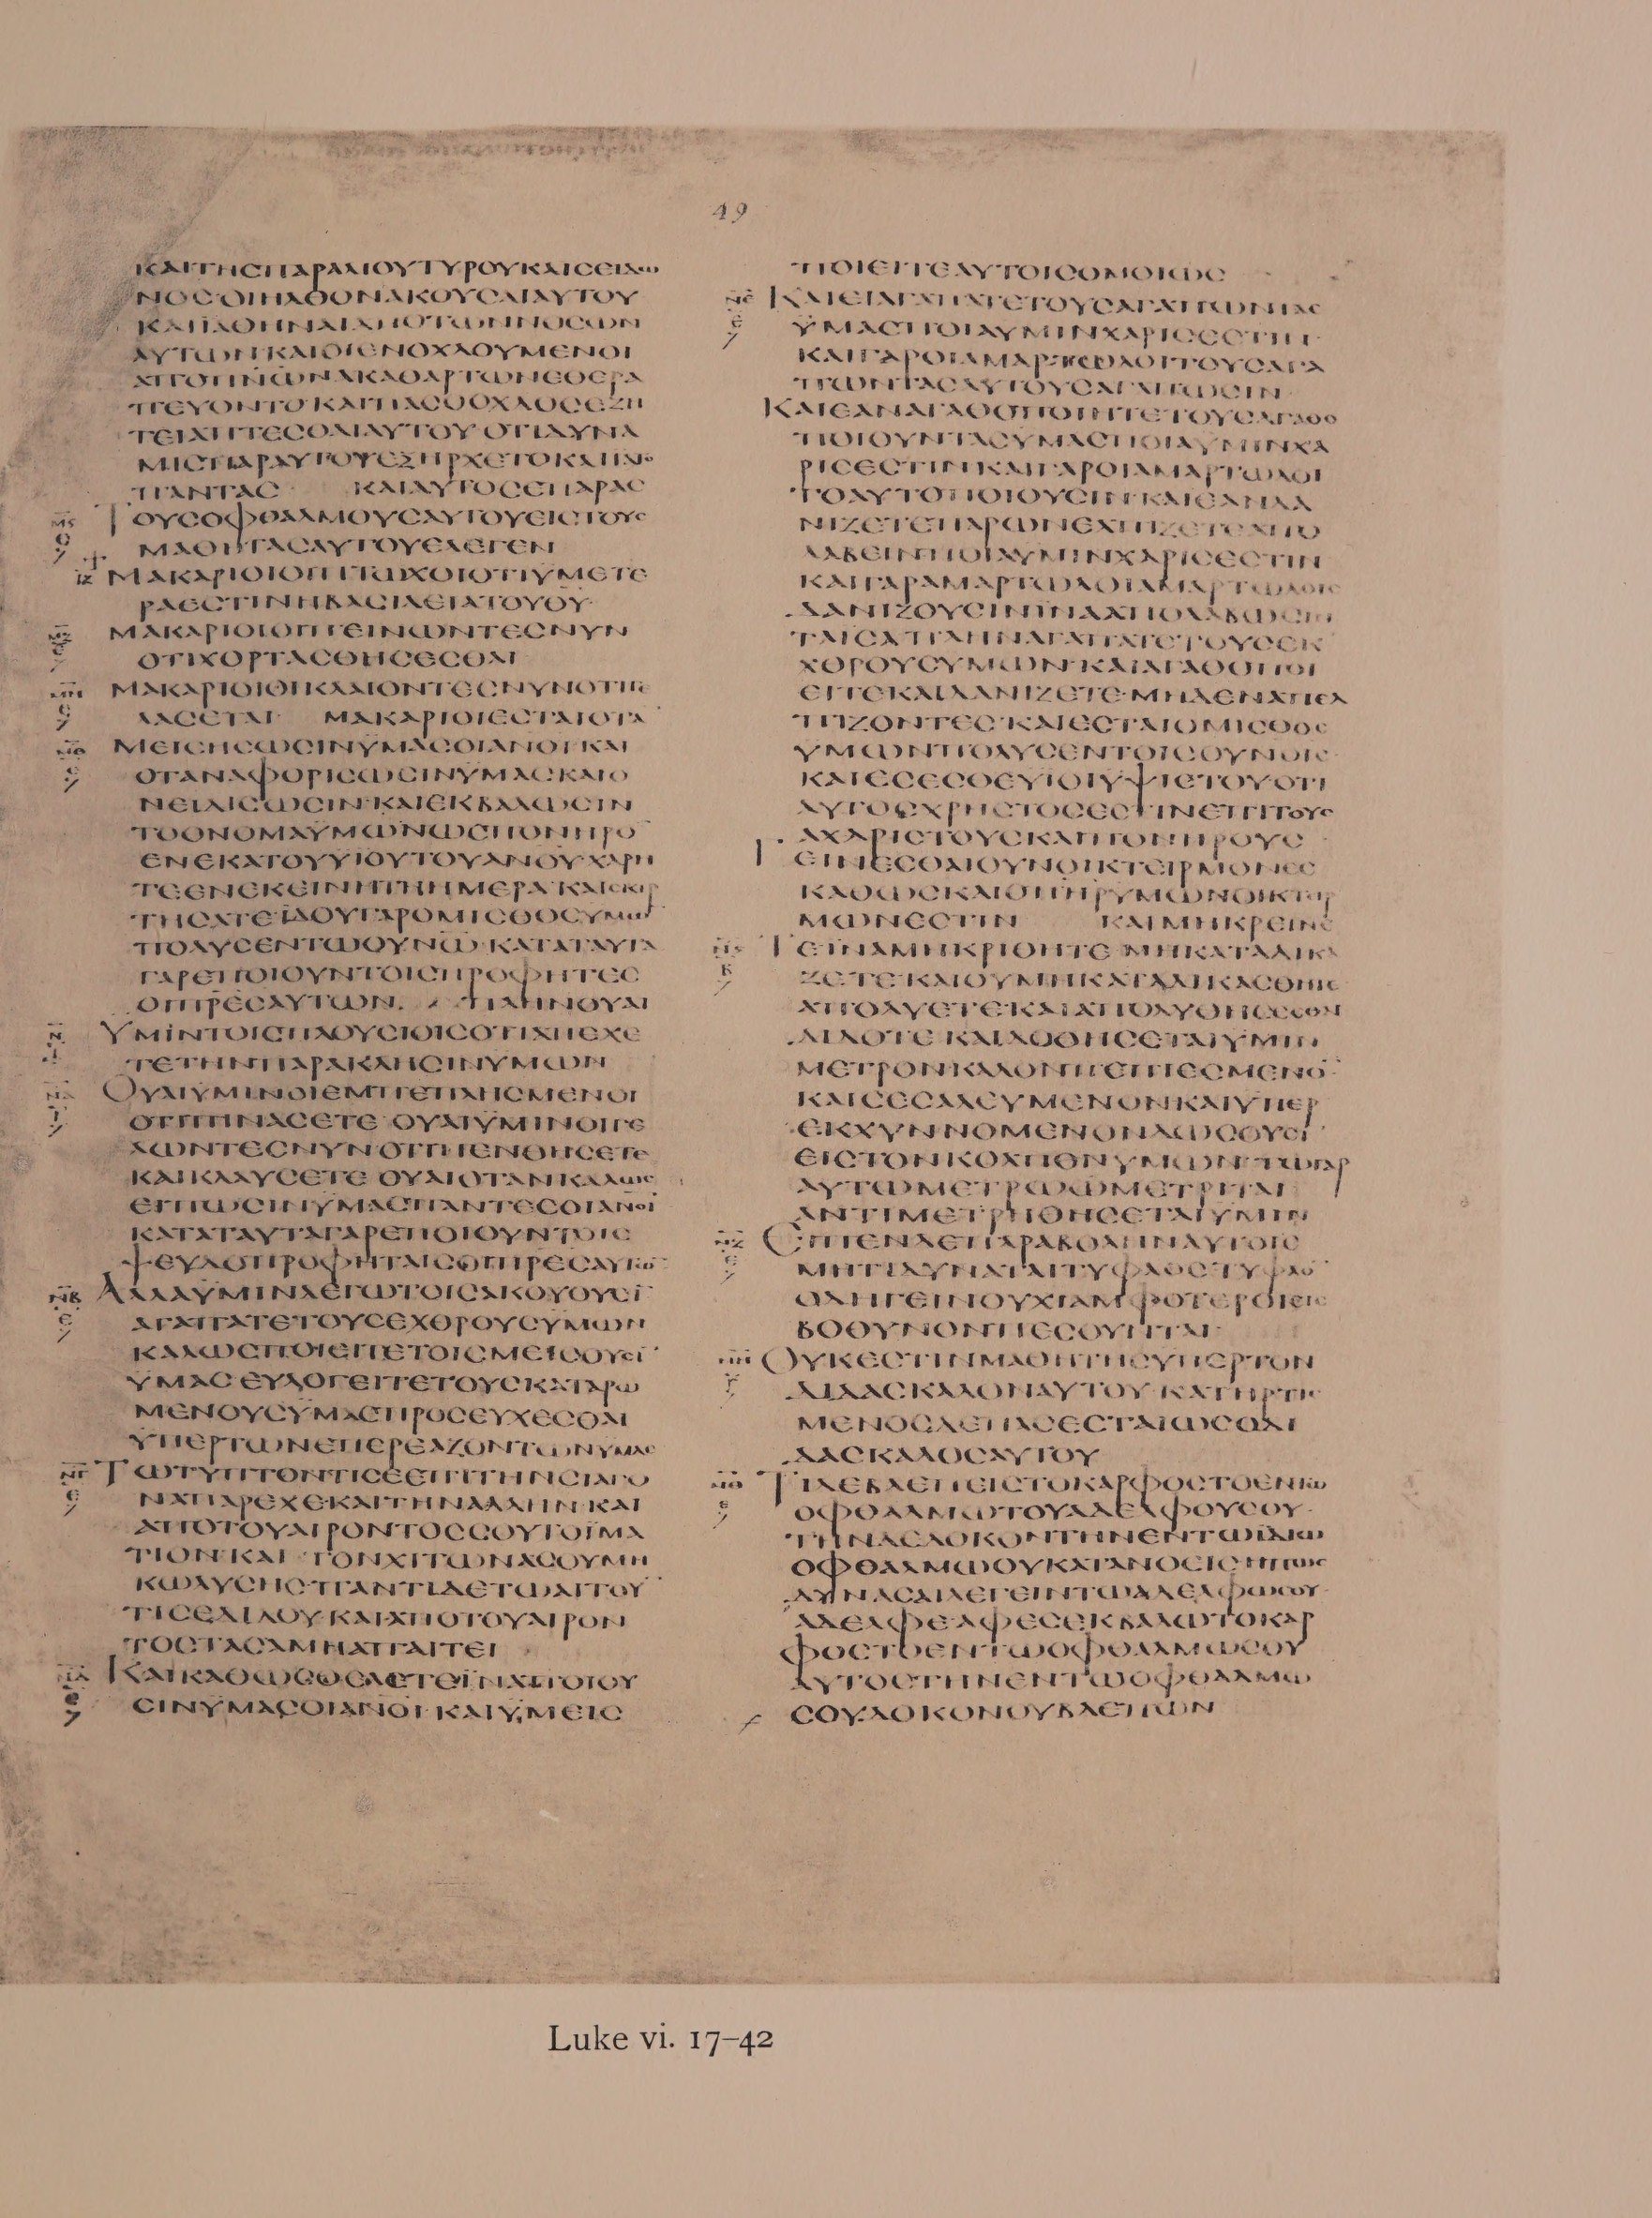 49
ΚΑΙΤΗϹΠΑΡΑΛΙΟΥΤΥΡΟΥΚΑΙϹΕΙΔΩ
ΝΟϹ·ΟΙΗΛΘΟΝΑΚΟΥϹΑΙΑΥΤΟΥ
ΚΑΙΙΑΘΗΝΑΙΑΠΟΤΩΝΝΟϹΩΝ
ΑΥΤΩΝ·ΚΑΙΟΙΕΝΟΧΛΟΥΜΕΝΟΙ
ΑΠΟΠΝΩΝΑΚΑΘΑΡΤΩΝΕΘΕΡΑ
ΠΕΥΟΝΤΟ·ΚΑΙΠΑϹΟΟΧΛΟϹΕΖΗ
ΤΕΙΑΠΤΕϹΘΑΙΑΥΤΟΥ·ΟΤΙΔΥΝΑ
ΜΙϹΠΑΡΑΥΤΟΥΕΞΗΡΧΕΤΟΚΑΙΙΑΤΟ
ΠΑΝΤΑϹ· ΚΑΙΑΥΤΟϹΕΠΑΡΑϹ
ΤΟΥϹΟΦΘΑΛΜΟΥϹΑΥΤΟΥΕΙϹΤΟΥϹ
ΜΑΘΗΤΑϹΑΥΤΟΥΕΛΕΓΕΝ
ΜΑΚΑΡΙΟΙΟΙΠΤΩΧΟΙΟΤΙΥΜΕΤΕ
ΡΑΕϹΤΙΝΗΒΑϹΙΛΕΙΑΤΟΥΘΥ·
ΜΑΚΑΡΙΟΙΟΙΠΕΙΝΩΝΤΕϹΝΥΝ
ΟΤΙΧΟΡΤΑϹΘΗϹΕϹΘΑΙ
ΜΑΚΑΡΙΟΙΟΙΚΛΑΙΟΝΤΕϹΝΥΝΟΤΙΓΕ
ΛΑϹΕΤΑΙ· ΜΑΚΑΡΙΟΙΕϹΤΑΙΟΤΑ
ΜΕΙϹΗϹΩϹΙΝΥΜΑϹΟΙΑΝΟΙΚΑΙ
ΟΤΑΝΑΦΟΡΙϹΩϹΙΝΥΜΑϹΚΑΙΟ
ΝΕΙΔΙϹΩϹΙΝ·ΚΑΙΕΚΒΑΛΩϹΙΝ
ΤΟΟΝΟΜΑΥΜΩΝΩϹΠΟΝΗΡΟ
ΕΝΕΚΑΤΟΥΥΙΟΥΤΟΥΑΝΟΥ·ΧΑΡΗ
ΤΕΕΝΕΚΕΙΝΗΤΗΗΜΕΡΑ·ΚΑΙϹΚΙΡ
ΤΗϹΑΤΕ·ΙΔΟΥΓΑΡΟΜΙϹΘΟϹΥΜΩ
ΠΟΛΥϹΕΝΤΩΟΥΝΩ·ΚΑΤΑΤΑΥΤΑ
ΓΑΡΕΠΟΙΟΥΝΤΟΙϹΠΡΟΦΗΤΕϹ
ΟΙΠΡΕϹΑΥΤΩΝ. ΠΛΗΝΟΥΑΙ
ΥΜΙΝΤΟΙϹΠΛΟΥϹΙΟΙϹΟΤΙΑΠΕΧΕ
ΤΕΤΗΝΠΑΡΑΚΛΗϹΙΝΥΜΩΝ
ΟΥΑΙΥΜΙΝΟΙΕΜΠΕΠΛΗϹΜΕΝΟΙ
ΟΤΙΠΙΝΑϹΕΤΕ·ΟΥΑΙΥΜΙΝΟΙΓΕ
ΛΩΝΤΕϹΝΥΝΟΤΙΠΕΝΘΗϹΕΤΕ
ΚΑΙΚΛΑΥϹΕΤΕ·ΟΥΑΙΟΤΑΝΚΑΛΩϹ
ΕΙΠΩϹΙΝΥΜΑϹΠΑΝΤΕϹΟΙΑΝΟΙ
ΚΑΤΑΤΑΥΤΑΓΑΡΕΠΟΙΟΥΝΤΟΙϹ
ΨΕΥΔΟΠΡΟΦΗΤΑΙϹΟΙΠΡΕϹΑΥΤΩ
ΑΛΛΑΥΜΙΝΛΕΓΩΤΟΙϹΑΚΟΥΟΥϹΙ
ΑΓΑΠΑΤΕΤΟΥϹΕΧΘΡΟΥϹΥΜΩΝ
ΚΑΛΩϹΠΟΙΕΙΤΕΤΟΙϹΜΕΙϹΟΥϹΙ
ΥΜΑϹ·ΕΥΛΟΓΕΙΤΕΤΟΥϹΚΑΤΑΡΩ
ΜΕΝΟΥϹΥΜΑϹΠΡΟϹΕΥΧΕϹΘΑΙ
ΥΠΕΡΤΩΝΕΠΕΡΕΑΖΟΝΤΩΝΥΜΑϹ
ΤΩΤΥΠΤΟΝΤΙϹΕΕΠΙΤΗΝϹΙΑΓΟ
ΝΑΠΑΡΕΧΕΚΑΙΤΗΝΑΛΛΗΝ·ΚΑΙ
ΑΠΟΤΟΥΑΙΡΟΝΤΟϹϹΟΥΤΟΙΜΑ
ΤΙΟΝ·ΚΑΙ ΤΟΝΧΙΤΩΝΑϹΟΥΜΗ
ΚΩΛΥϹΗϹ·ΠΑΝΤΙΔΕΤΩΑΙΤΟΥ
ΤΙϹΕΔΙΔΟΥ·ΚΑΙΑΠΟΤΟΥΑΙΡΟΝ
ΤΟϹΤΑϹΑΜΗΑΠΑΙΤΕΙ
ΚΑΙΚΑΘΩϹΘΕΛΕΤΕΙΝΑΠΟΙΟΥ
ϹΙΝΥΜΑϹΟΙΑΝΟΙ·ΚΑΙΥΜΕΙϹ
ΠΟΙΕΙΤΕΑΥΤΟΙϹΟΜΟΙΩϹ
ΚΑΙΕΙΑΓΑΠΑΤΕΤΟΥϹΑΓΑΠΩΝΤΑϹ
ΥΜΑϹΠΟΙΑΥΜΙΝΧΑΡΙϹΕϹΤΙΝ
ΚΑΙΓΑΡΟΙΑΜΑΡΤΩΛΟΙΤΟΥϹΑΓΑ
ΠΩΝΤΑϹΑΥΤΟΥϹΑΓΑΠΩϹΙΝ
ΚΑΙΕΑΝΑΓΑΘΟΠΟΙΗΤΕΤΟΥϹΑΓΑΘΟ
ΠΟΙΟΥΝΤΑϹΥΜΑϹΠΟΙΑΥΜΙΝΧΑ
ΡΙϹΕϹΤΙΝ·ΚΑΙΓΑΡΟΙΑΜΑΡΤΩΛΟΙ
ΤΟΑΥΤΟΠΟΙΟΥϹΙΝ·ΚΑΙΕΑΝΔΑ
ΝΙΖΕΤΕΠΑΡΩΝΕΛΠΙΖΕΤΕΑΠΟ
ΛΑΒΕΙΝΠΟΙΑΥΜΙΝΧΑΡΙϹΕϹΤΙΝ
ΚΑΙΓΑΡΑΜΑΡΤΩΛΟΙΑΜΑΡΤΩΛΟΙϹ
ΔΑΝΙΖΟΥϹΙΝΙΝΑΑΠΟΛΑΒΩϹΙΝ
ΤΑΙϹΑ·ΠΛΗΝΑΓΑΠΑΤΕΤΟΥϹΕΚ
ΧΘΡΟΥϹΥΜΩΝ·ΚΑΙΑΓΑΘΟΠΟΙ
ΕΙΤΕΚΑΙΔΑΝΙΖΕΤΕ·ΜΗΔΕΝΑΠΕΛ
ΠΙΖΟΝΤΕϹ·ΚΑΙΕϹΤΑΙΟΜΙϹΘΟϹ
ΥΜΩΝΠΟΛΥϹΕΝΤΟΙϹΟΥΝΟΙϹ·
ΚΑΙΕϹΕϹΘΕΥΙΟΙΥΨΙϹΤΟΥ·ΟΤΙ
ΑΥΤΟϹΧΡΗϹΤΟϹΕϹΤΙΝΕΠΙΤΟΥϹ
ΑΧΑΡΙϹΤΟΥϹΚΑΙΠΟΝΗΡΟΥϹ
ΓΕΙΝΕϹΘΑΙΟΥΝΟΙΚΤΕΙΡΜΟΝΕϹ
ΚΑΘΩϹΚΑΙΟΠΗΡΥΜΩΝΟΙΚΤΙΡ
ΜΩΝΕϹΤΙΝ ΚΑΙΜΗΚΡΕΙΝΕ
ΤΕΙΝΑΜΗΚΡΙΘΗΤΕ·ΜΗΚΑΤΑΔΙΚΑ
ΖΕΤΕ·ΚΑΙΟΥΜΗΚΑΤΑΔΙΚΑϹΘΗΤΕ
ΑΠΟΛΥΕΤΕ·ΚΑΙΑΠΟΛΥΘΗϹΕϹΘΑΙ
ΔΙΔΟΤΕ·ΚΑΙΔΟΘΗϹΕΤΑΙΥΜΙΝ
ΜΕΤΡΟΝΚΑΛΟΝΠΕΠΙΕϹΜΕΝΟ
ΚΑΙϹΕϹΑΛΕΥΜΕΝΟΝΚΑΙΥΠΕΡ
ΕΚΧΥΝΝΟΜΕΝΟΝΔΩϹΟΥϹΙ
ΕΙϹΤΟΝΚΟΛΠΟΝΥΜΩΝ·ΤΩΓΑΡ
ΑΥΤΩΜΕΤΡΩΩΜΕΤΡΙΤΑΙ
ΑΝΤΙΜΕΤΡΗΘΗϹΕΤΑΙΥΜΙΝ
ΕΙΠΕΝΔΕΠΑΡΑΒΟΛΗΝΑΥΤΟΙϹ
ΜΗΤΙΔΥΝΑΤΑΙΤΥΦΛΟϹΤΥΦΛΟ
ΟΔΗΓΕΙΝΟΥΧΙΑΜΦΟΤΕΡΟΙΕΙϹ
ΒΟΘΥΝΟΝΠΕϹΟΥΝΤΑΙ·
ΟΥΚΕϹΤΙΝΜΑΘΗΤΗϹΥΠΕΡΤΟΝ
ΔΙΔΑϹΚΑΛΟΝΑΥΤΟΥ·ΚΑΤΗΡΤΙϹ
ΜΕΝΟϹΔΕΠΑϹΕϹΤΑΙΩϹΟΔΙ
ΔΑϹΚΑΛΟϹΑΥΤΟΥ
ΤΙΔΕΒΛΕΠΕΙϹΤΟΚΑΡΦΟϹΤΟΕΝΤΩ
ΟΦΘΑΛΜΩΤΟΥΑΔΕΛΦΟΥϹΟΥ·
ΤΗΝΔΕΔΟΚΟΝΤΗΝΕΝΤΩΙΔΙΩ
ΟΦΘΑΛΜΩΟΥΚΑΤΑΝΟΕΙϹ·ΗΠΩϹ
ΔΥΝΑϹΑΙΛΕΓΕΙΝΤΩΑΔΕΛΦΩϹΟΥ·
ΑΔΕΛΦΕΑΦΕϹΕΚΒΑΛΩΤΟΚΑΡ
ΦΟϹΤΟΕΝΤΩΟΦΘΑΛΜΩϹΟΥ
ΑΥΤΟϹΤΗΝΕΝΤΩΟΦΘΑΛΜΩ
ϹΟΥΔΟΚΟΝΟΥΒΛΕΠΩΝ
Luke vi. 17–42